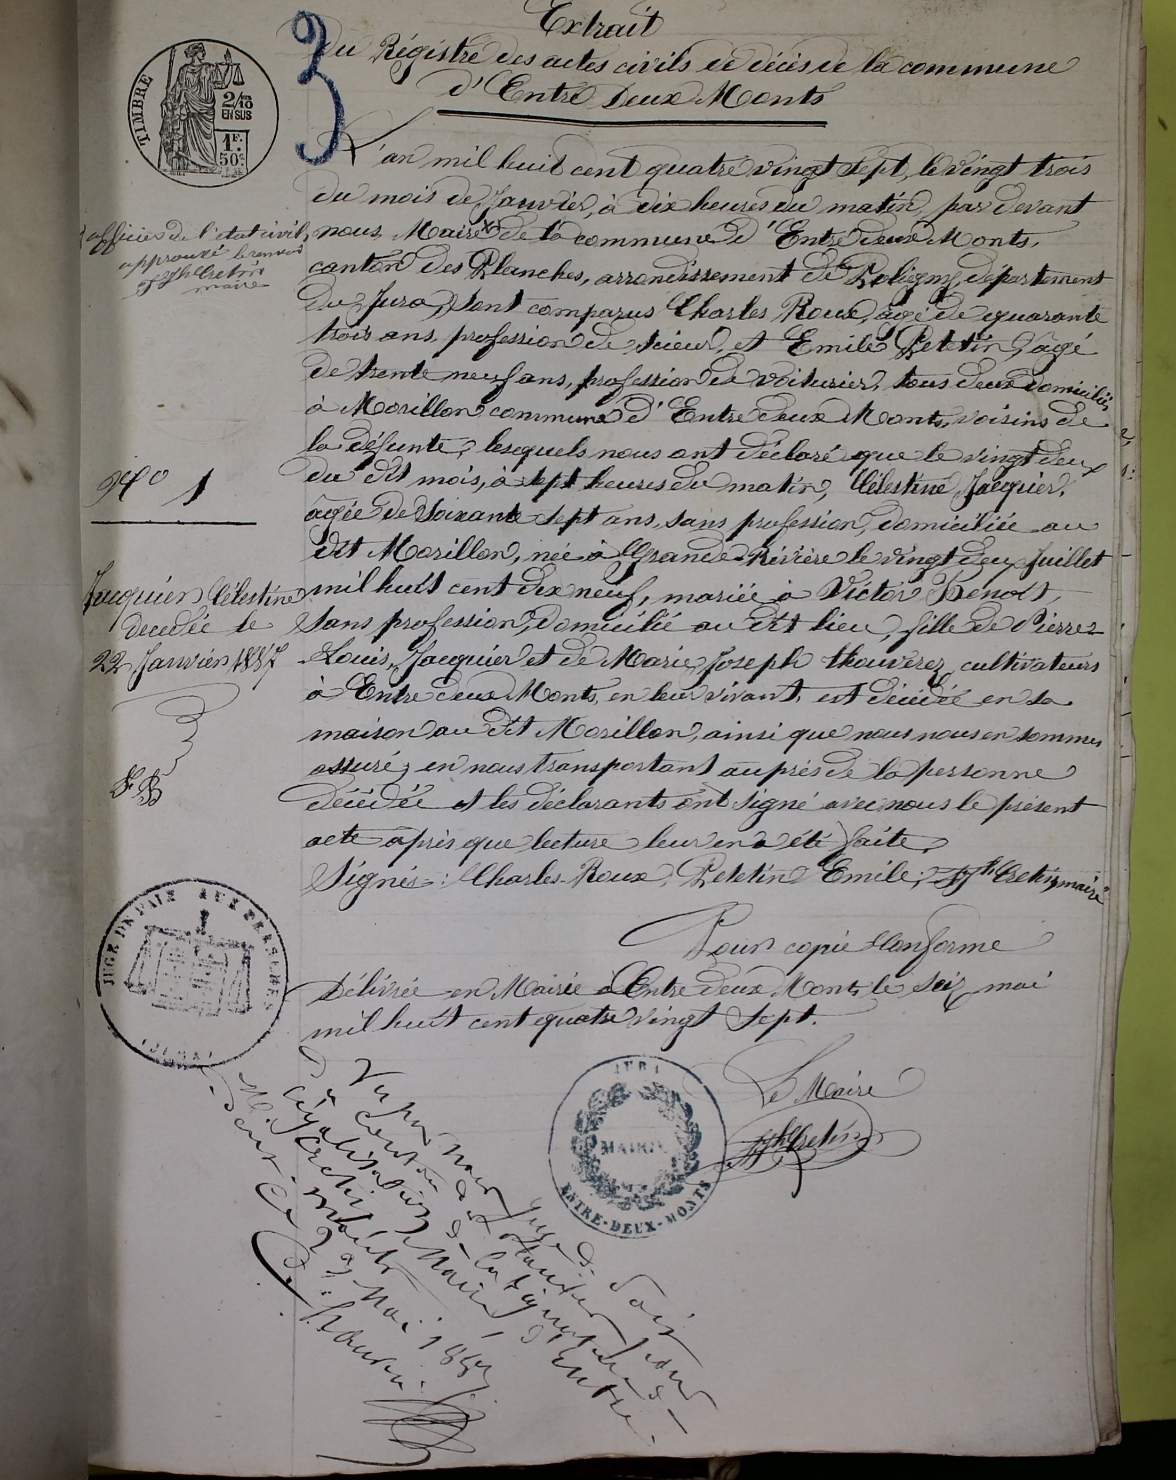 Extrait
du Régistre des actes civils de décès de la commune
d'Entre Deux Monts
3
TIMBRE
2/10
EN SUS
1F.
50c.
L'an mil huit cent quatre vingt sept, le vingt trois
du mois de Janvier, à dix heures du matin, par devant
nous, Maire de la commune d'Entre deux Monts,
canton des Planches, arrondissement de Poligny, département
du Jura, sont comparus Charles Roux, âgé de quarante
trois ans, profession de scieur, et Emile Peletin, âgé
de trente neuf ans, profession de voiturier, tous deux domiciliés
à Morillon commune d'Entre deux Monts, voisins de
la défunte, lesquels nous ont déclaré que le vingt deux
du dit mois, à sept heures du matin, Célestine Jacquier,
âgée de soixante sept ans, sans profession, domiciliée au
dit Morillon, née à Grande-Rivière le vingt deux Juillet
mil huit cent dix neuf, mariée à Victor Benoit,
sans profession, domicilié au dit lieu, fille de Pierre
Louis Jacquier et de Marie Joseph Thouverez, cultivateurs
à Entre deux Monts, en leur vivant, est décédée en sa
maison au dit Morillon, ainsi que nous nous en sommes
assuré, en nous transportant auprès de la personne
décédée et les déclarants ont signé avec nous le présent
acte après que lecture leur en a été faite.
Signés : Charles Roux, Peletin Emile, Cretin, maire
officier de l'état civil,
approuvé le renvoi
Cretin
maire
No 1
Jacquier Célestine
décédée le
22 Janvier 1887
Pour copie conforme
Délivrée en Mairie à Entre deux Monts le seize mai
mil huit cent quatre vingt sept.
Le Maire
Cretin
JUGE DE PAIX AUX PLANCHES
(JURA)
JURA
MAIRIE
ENTRE-DEUX-MONTS
Vu par nous juge de paix
du canton des Planches pour
légalisation de la signature de
M. Cretin Maire d'Entre-
deux-Monts
Ce 23 Mai 1887